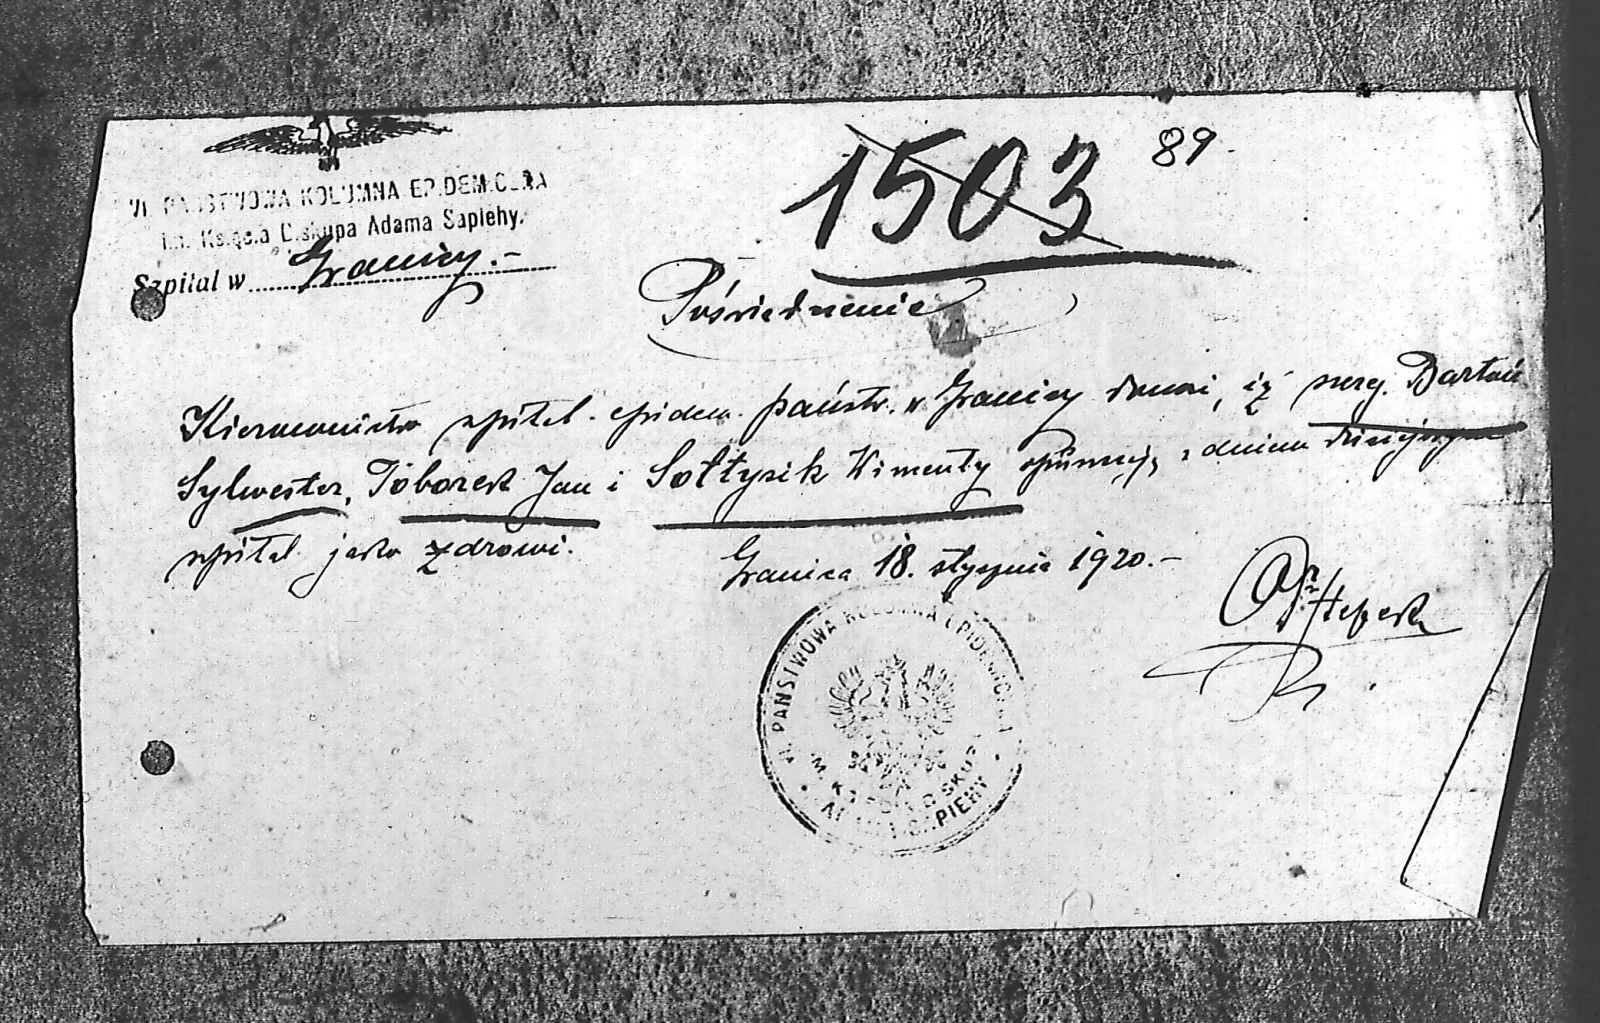 1503 89
VI. PAŃSTWOWA KOLUMNA EPIDEMICZNA
im. Księcia Biskupa Adama Sapiehy.
Szpital w Granicy.-
Poświadczenie
Kierownictwo szpital. epidem. państw. w Granicy donosi, iż szereg. Bartoń
Sylwester, Toborek Jan i Sołtysik Klimenty opuszczają z dniem dzisiejszym
szpital jako zdrowi.
Granica 18. stycznia 1920.-
Dr
VI. PAŃSTWOWA KOLUMNA EPIDEMICZNA
IM. KSIĘCIA BISKUPA
ADAMA SAPIEHY